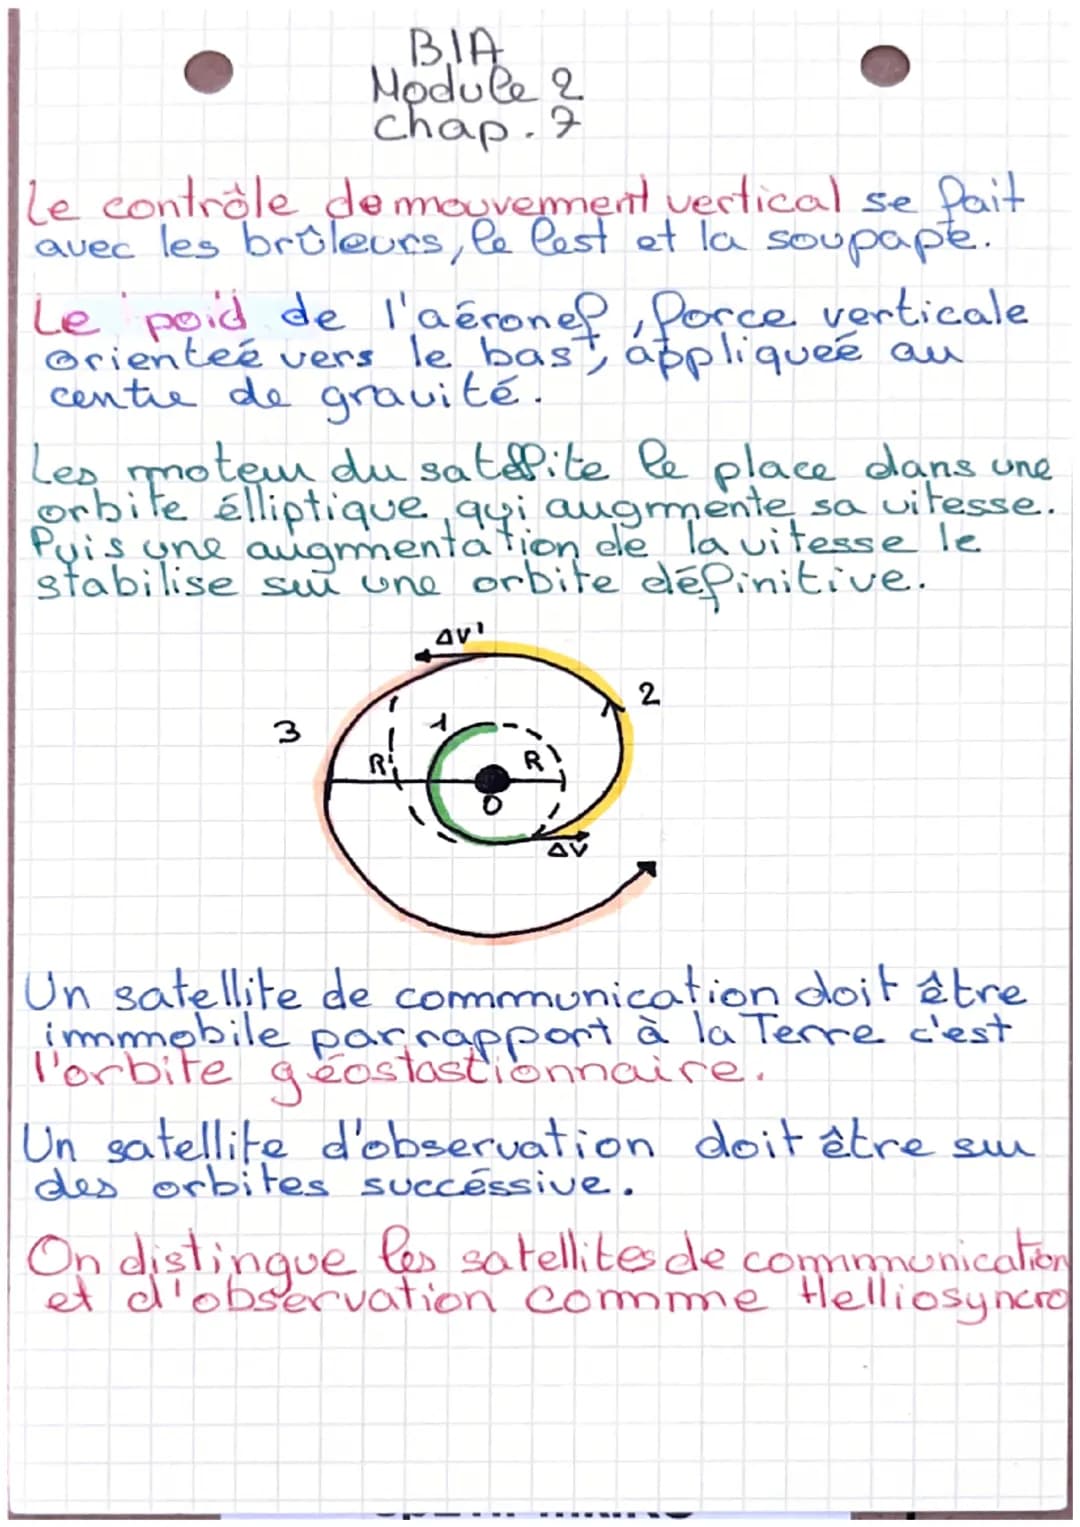 BIA
Module 2
chap. 7
Le contrôle de mouvement vertical se fait
avec les brûleurs, le lest et la soupape.
Le poid de l'aéronef, force verticale
orienteé vers le bas, appliqueé au
centre de gravité.
Les moteur du satellite le place dans une
orbite élliptique qui augmente sa vitesse.
Puis une augmentation de la vitesse le
stabilise sur une orbite définitive.
ΔV'
2
3
1
R'
R
O
ΔV
Un satellite de communication doit être
immobile par rapport à la Terre c'est
l'orbite géostastionnaire.
Un satellite d'observation doit être sur
des orbites succéssive.
On distingue les satellites de communication
et d'observation comme Helliosyncro